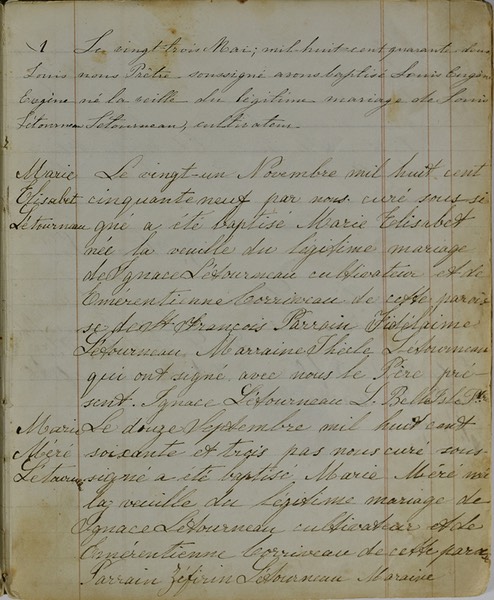 1 Le vingt trois Mai; mil-huit-cent quarante deux
Louis nous Prêtre soussigné avons baptisé Louis Eugèn
Eugène né la veille du légitime mariage de Louis
Létourneau Létourneau, cultivateur
Marie Le vingt-un Novembre mil huit cent
Elisabet cinquante neuf par nous curé sous-si
Létourneau gné a été baptisé Marie Elisabet
née la veuille du légitime mariage
de Ignace Létourneau cultivateur et de
Emérentienne Corriveau de cette parois
se de St François Parrain Fidélaime
Létourneau Marraine Thècle Létourneau
qui ont signé avec nous le Père pré-
sent. Ignace Létourneau L. Belleisle Ptre
Marie Le douze Septembre mil huit cent
Méré soixante et trois pas nous curé sous-
Létourneau signé a été baptisé Marie Méré née
la veuille du légitime mariage de
Ignace Létourneau cultivateur et de
Emérentienne Corriveau de cette paroi
Parrain Zéfirin Létourneau Maraine